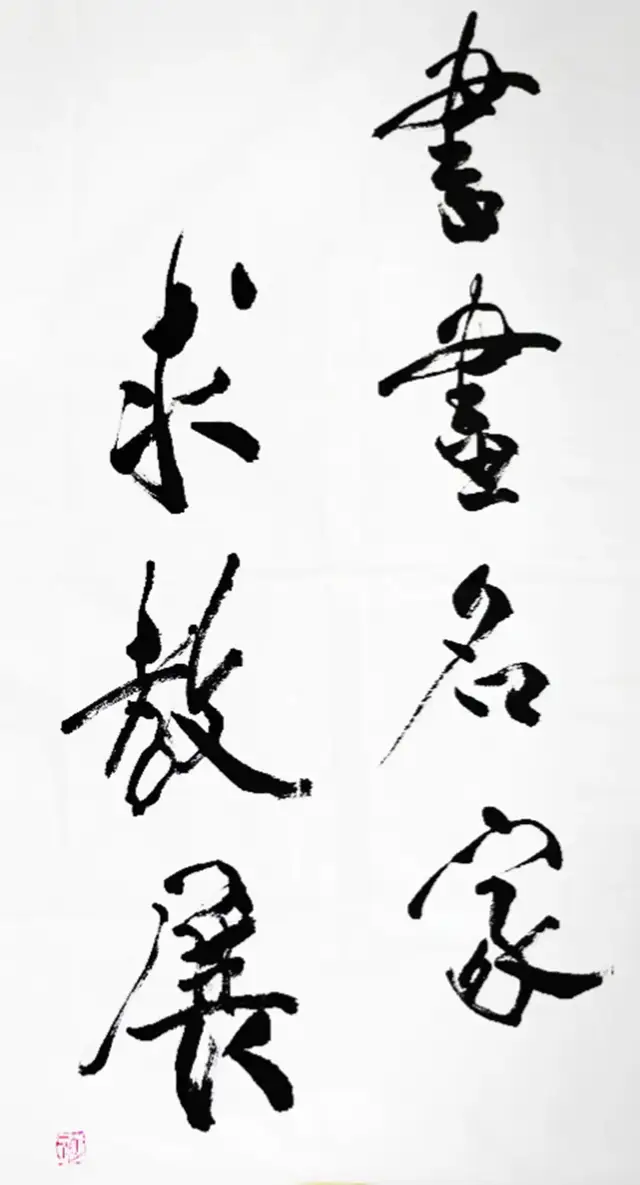 書畫名家
求教展